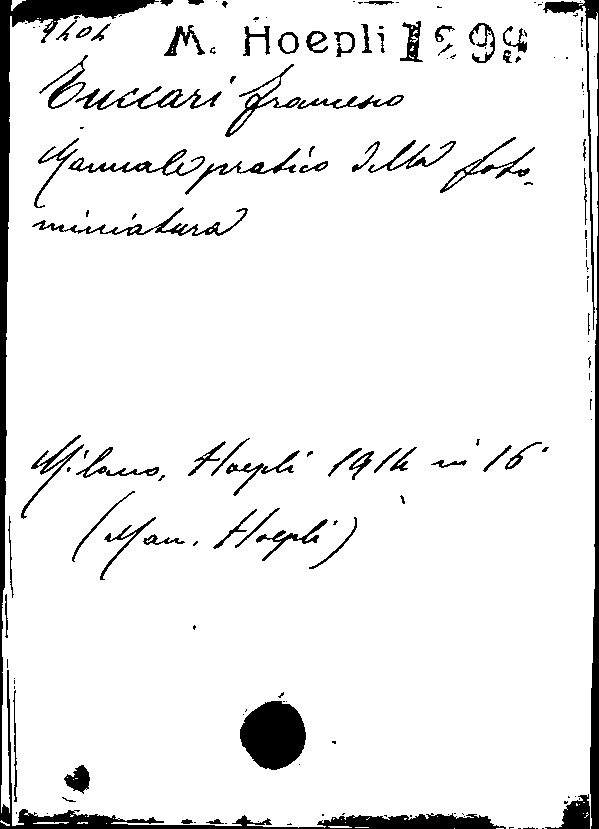 9404 M. Hoepli 1299
Tuccari Francesco
Manuale pratico della foto-
miniatura
Milano, Hoepli 1914 in 16°
(Man. Hoepli)